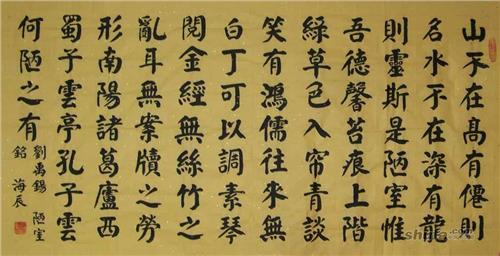 山不在高有僊則
名水不在深有龍
則靈斯是陋室惟
吾德馨苔痕上階
綠草色入帘青談
笑有鴻儒往來無
白丁可以調素琴
閱金經無絲竹之
亂耳無案牘之勞
形南陽諸葛廬西
蜀子雲亭孔子雲
何陋之有
劉禹錫 陋室
銘 海辰